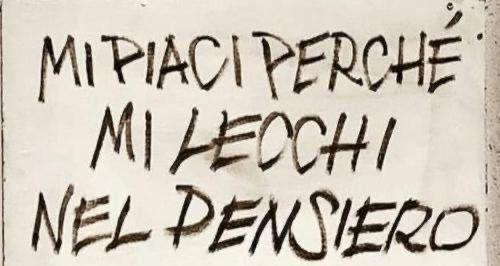 MI PIACI PERCHÉ
MI LECCHI
NEL PENSIERO